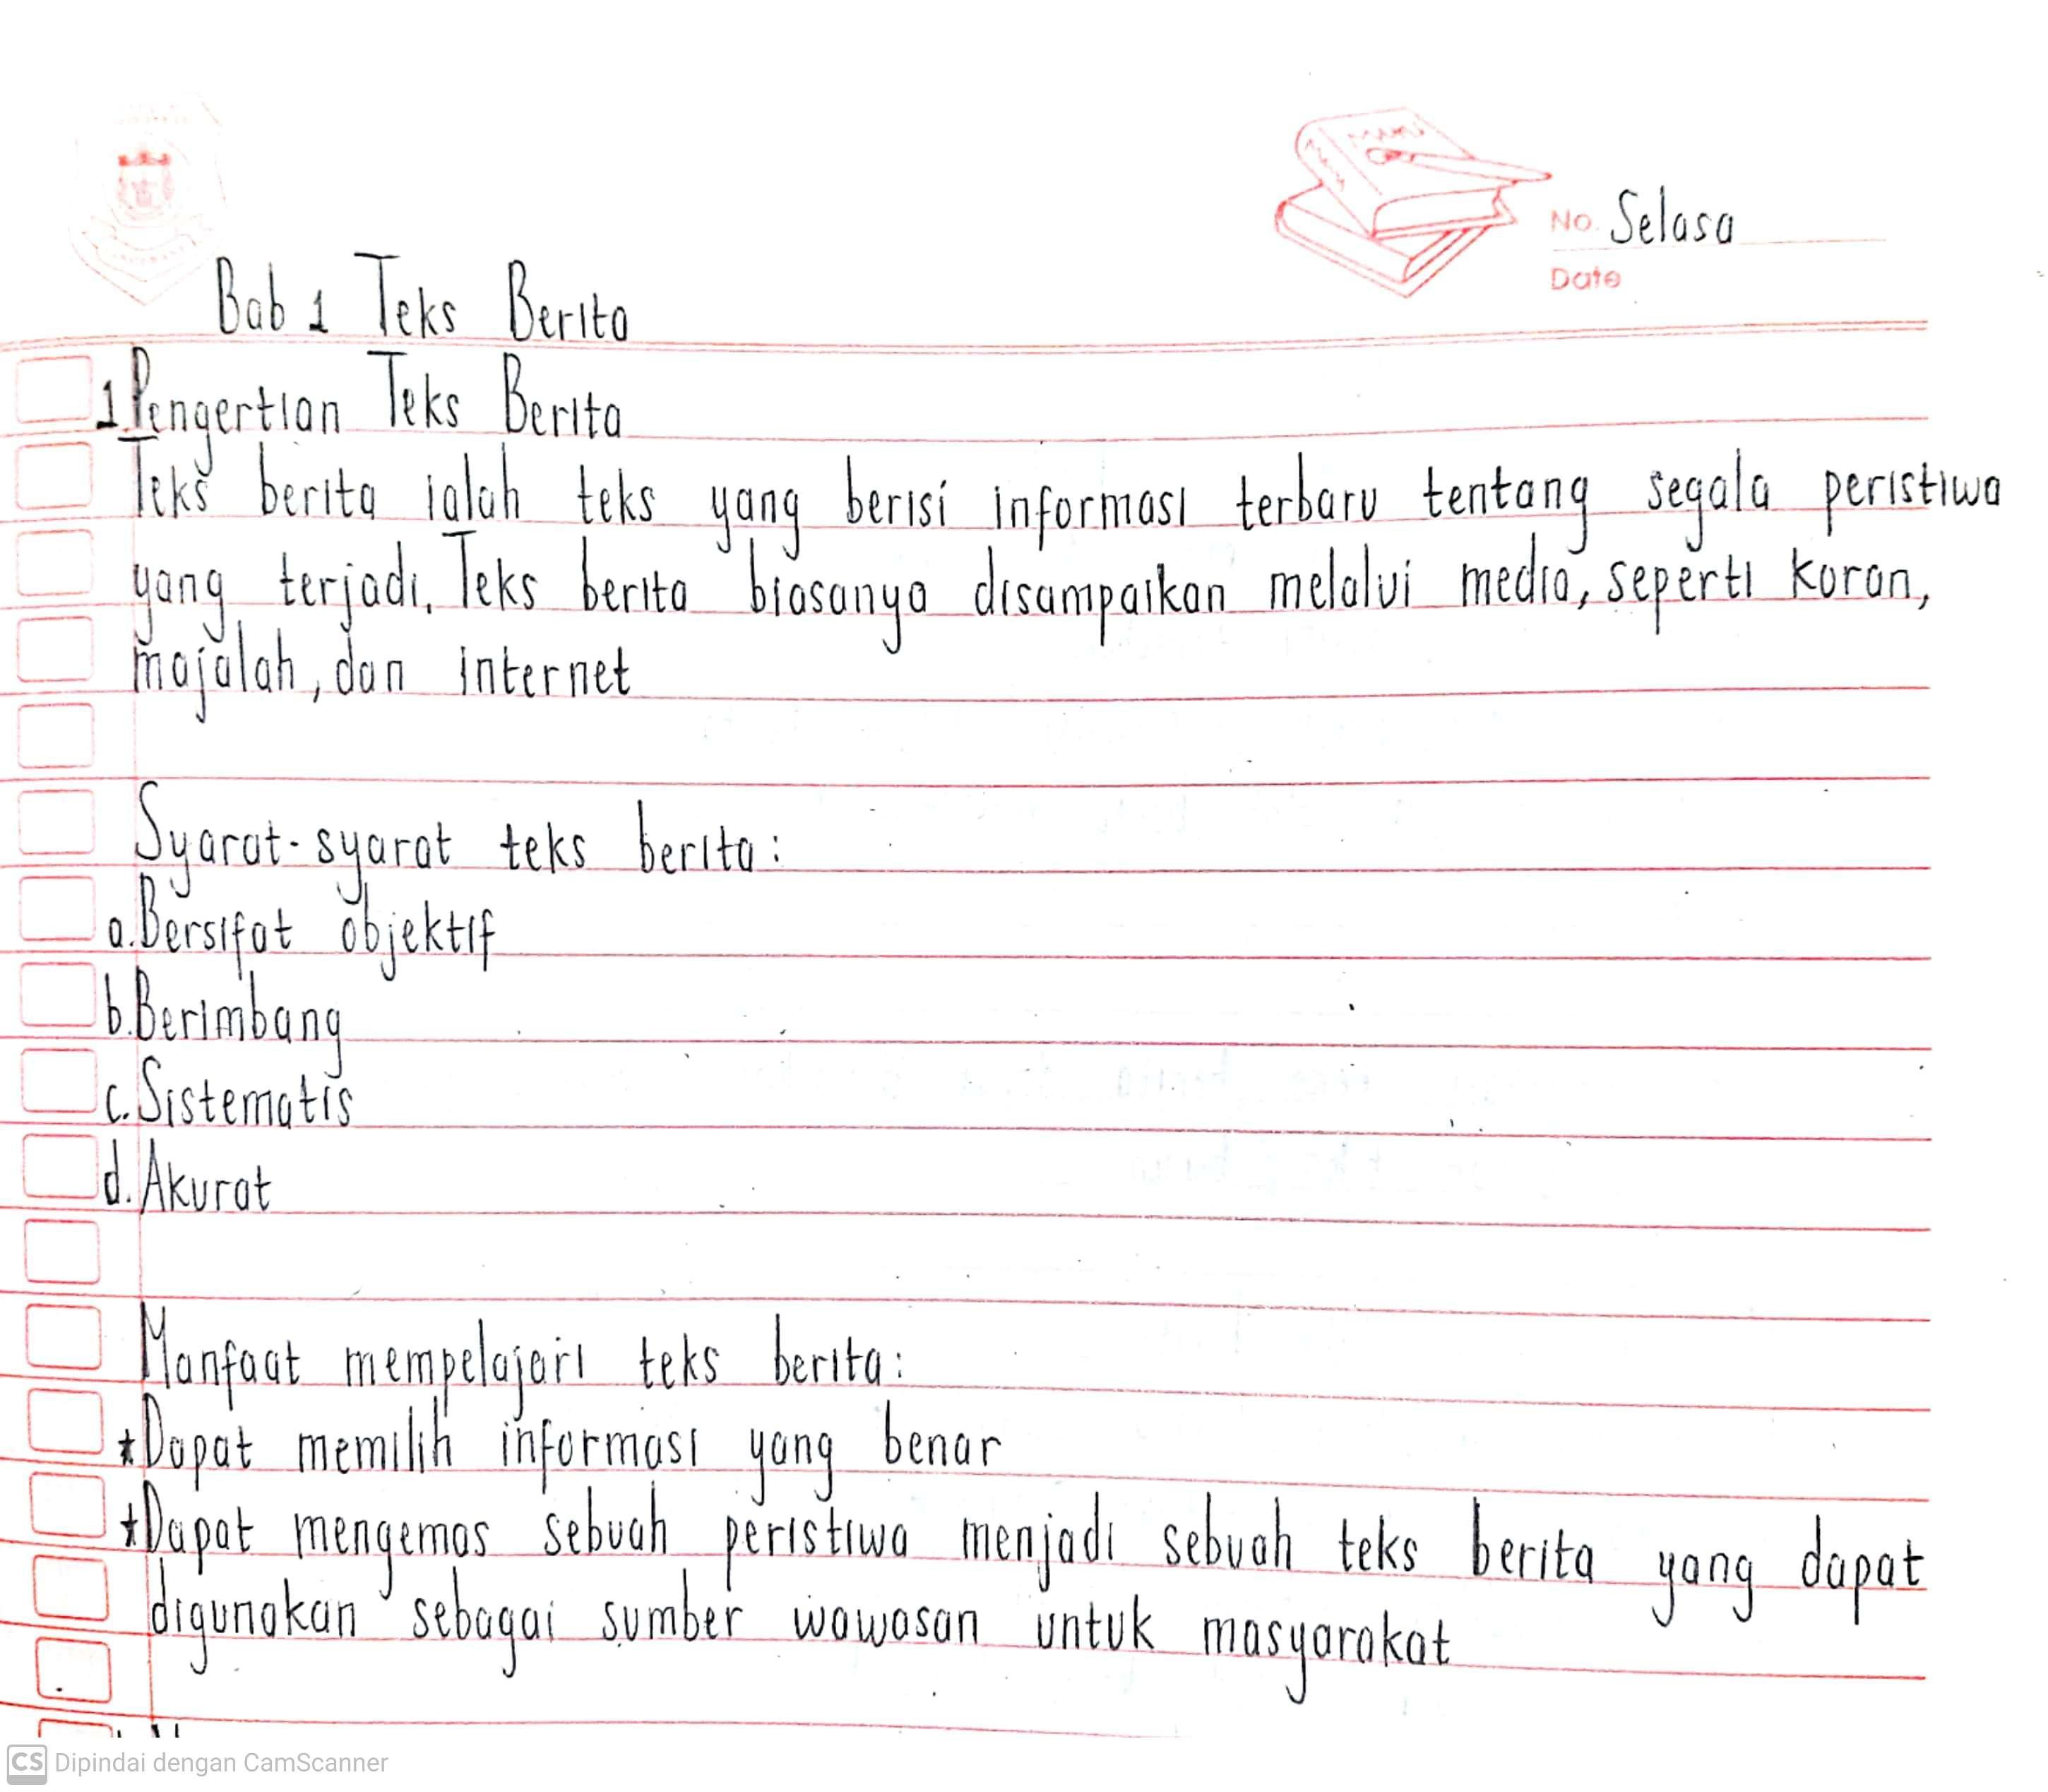 No. Selasa
Date
Bab 1 Teks Berita
1.Pengertian Teks Berita
Teks berita ialah teks yang berisi informasi terbaru tentang segala peristiwa
yang terjadi. Teks berita biasanya disampaikan melalui media, seperti koran,
majalah, dan internet
Syarat-syarat teks berita:
a.Bersifat objektif
b.Berimbang
c.Sistematis
d.Akurat
Manfaat mempelajari teks berita:
*Dapat memilih informasi yang benar
*Dapat mengemas sebuah peristiwa menjadi sebuah teks berita yang dapat
digunakan sebagai sumber wawasan untuk masyarakat
CS Dipindai dengan CamScanner